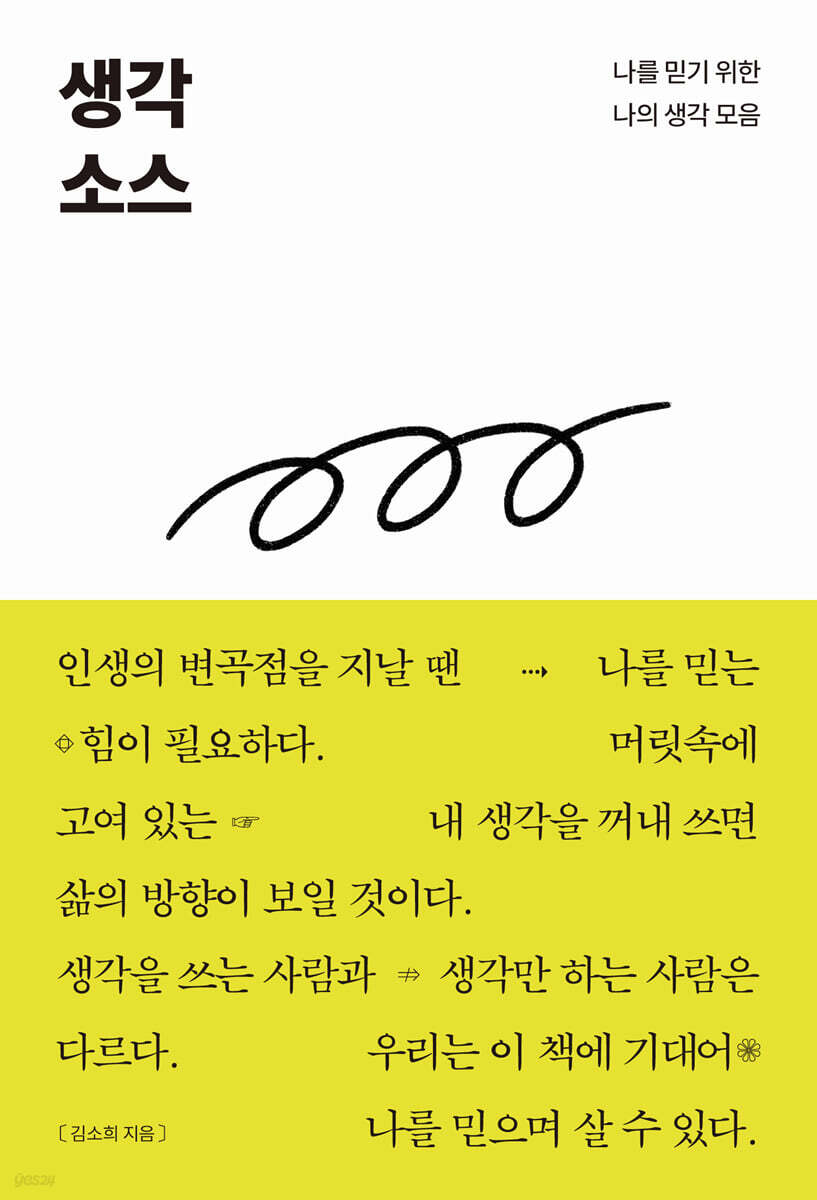 생각
소스
나를 믿기 위한
나의 생각 모음
인생의 변곡점을 지날 땐 ⇢ 나를 믿는
힘이 필요하다. 머릿속에
고여 있는 ☞ 내 생각을 꺼내 쓰면
삶의 방향이 보일 것이다.
생각을 쓰는 사람과 ⇏ 생각만 하는 사람은
다르다. 우리는 이 책에 기대어
나를 믿으며 살 수 있다.
[ 김소희 지음 ]
yes24